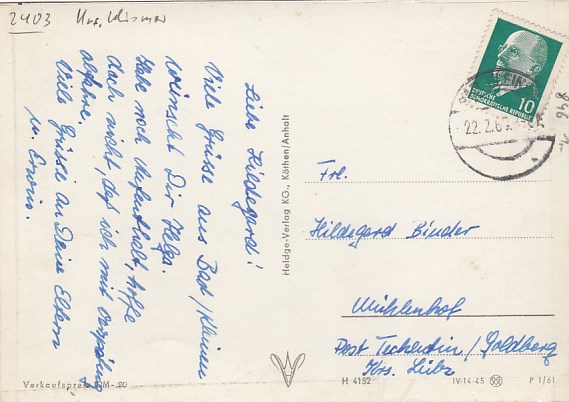 2403 Krs. Wismar
Liebe Hildegard!
Viele Grüsse aus Bad/Kleinen
wünscht Dir Helga.
Habe noch Aufenthalt, hoffe
doch nicht, daß ich mit Verspätung
abfahre.
Viele Grüsse an Deine Eltern
u. Erwin.
Heldge-Verlag KG., Köthen/Anhalt
DEUTSCHE
DEMOKRATISCHE REPUBLIK
10
22.2.6
846
Frl.
Hildegard Binder
Mühlenhof
Post Techentin/Goldberg
Krs. Lübz
Verkaufspreis DM -.20
H 4152
IV-14-45
P 1/61